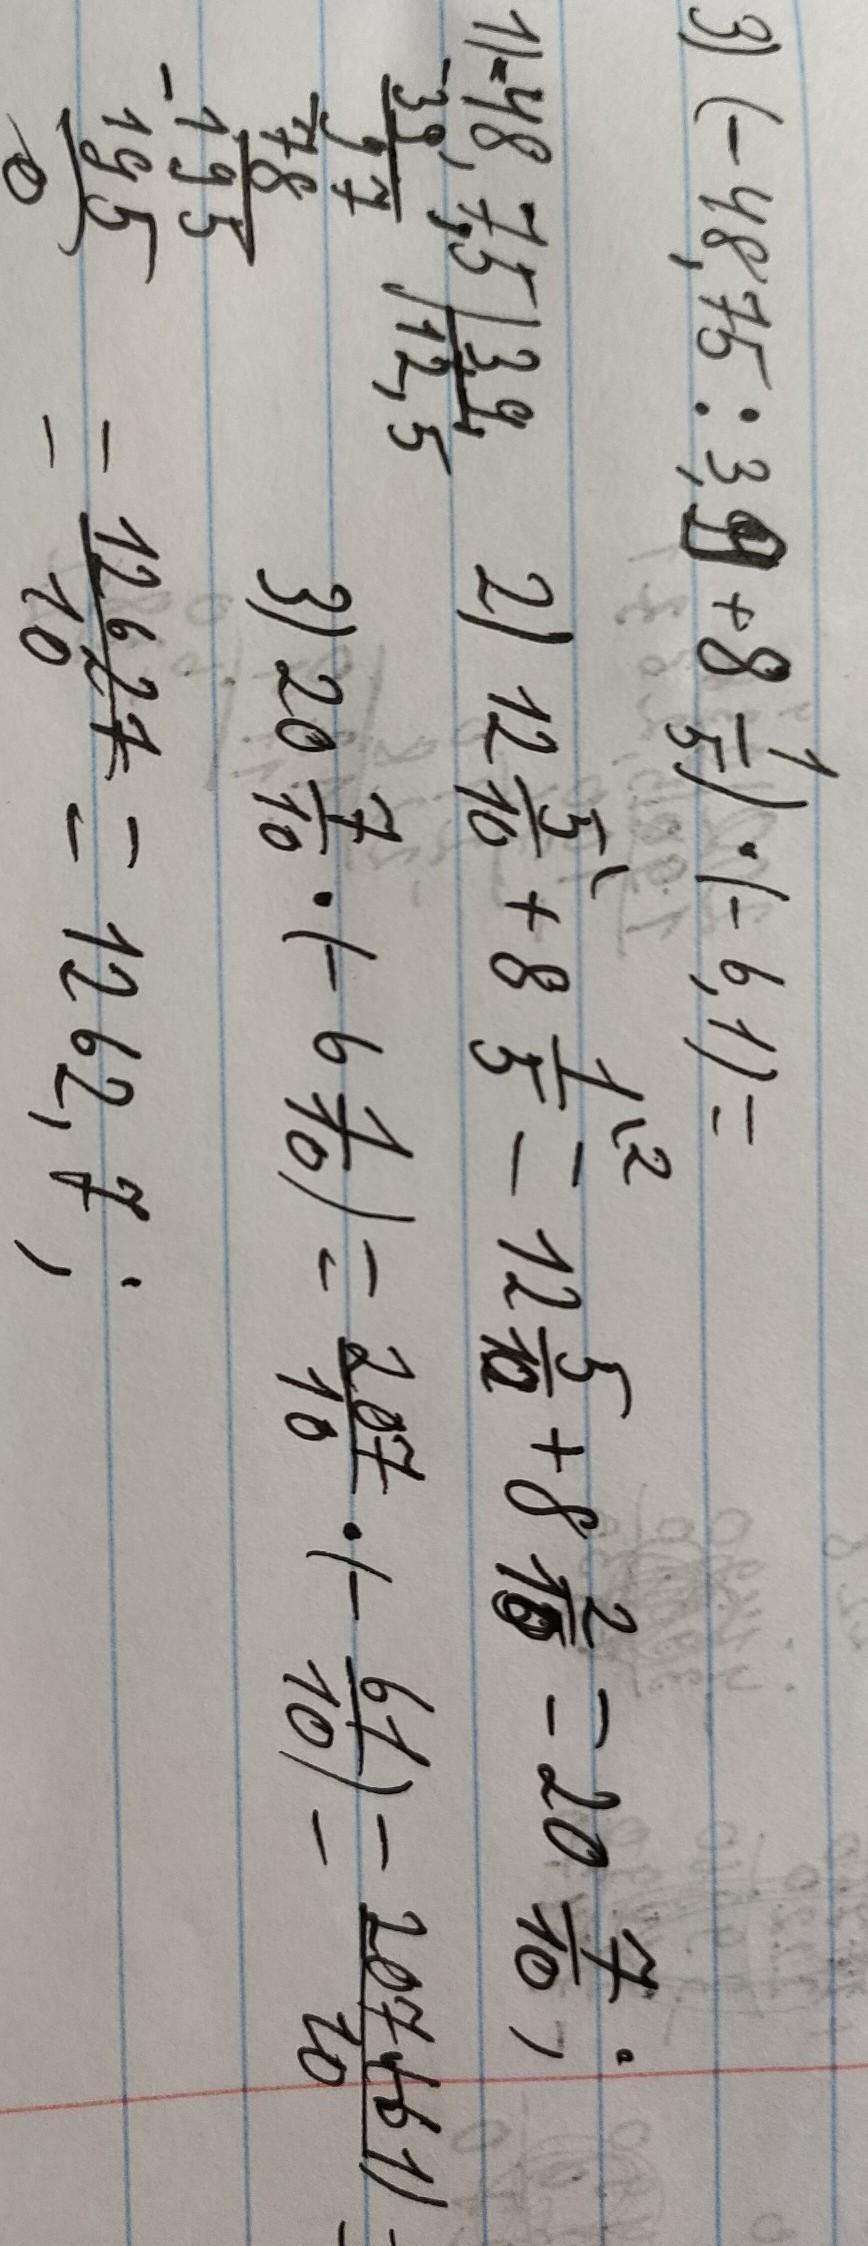 3) (-48,75 : 3,9 + 8 1/5) · (-6,1) =
1) -48,75 | 39
-39, | 12,5
97
78
-195
195
0
2) 12 5/10 + 8 1/5 \2 = 12 5/10 + 8 2/10 = 20 7/10 ;
3) 20 7/10 · (-6 1/10) = 207/10 · (-61/10) = 207·(-61)/10 =
= 12627/10 = 1262,7 ;